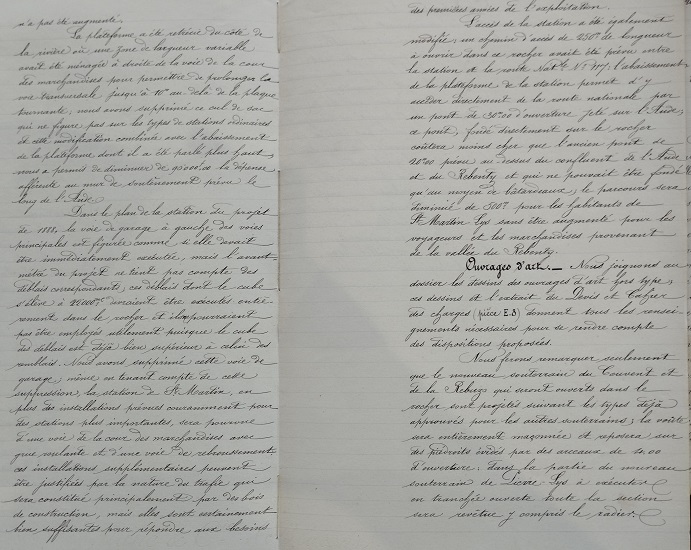 n'a pas été augmenté.
La plateforme a été rétrécie du côté de
la rivière où une zone de largeur variable
avait été ménagée à droite de la voie de la cour
des marchandises pour permettre de prolonger la
voie transversale jusqu'à 10m au delà de la plaque
tournante; nous avons supprimé ce cul de sac
qui ne figure pas sur les types de stations ordinaires
et cette modification combinée avec l'abaissement
de la plateforme dont il a été parlé plus haut
nous a permis de diminuer de la dépense
afférente au mur de soutènement prévu le
long de l'Aude.
Dans le plan de la station du projet
de 1888, la voie de garage à gauche des voies
principales est figurée comme si elle devait
être immédiatement exécutée, mais l'avant
métré du projet ne tient pas compte des
déblais correspondants; ces déblais dont le cube
s'élève à devraient être exécutés entiè
rement dans le rocher et ils ne pourraient
pas être employés utilement puisque le cube
des déblais est déjà bien supérieur à celui des
remblais. Nous avons supprimé cette voie de
garage; même en tenant compte de cette
suppression, la station de St Martin, en
plus des installations prévues couramment pour
des stations plus importantes, sera pourvue
d'une voie de la cour des marchandises avec
grue roulante et d'une voie de rebroussement
ces installations supplémentaires peuvent
être justifiées par la nature du trafic qui
sera constitué principalement par des bois
de construction, mais elles sont certainement
bien suffisantes pour répondre aux besoins
des premières années de l'exploitation.
L'accès de la station a été également
modifié; un chemin d'accès de 250m de longueur
à ouvrir dans le rocher avait été prévu entre
la station et la route Natle No 117; l'abaissement
de la plateforme de la station permet d'y
accéder directement de la route nationale par
un pont de d'ouverture jeté sur l'Aude;
ce pont, fondé directement sur le rocher
coûtera moins cher que l'ancien pont de
20m00 prévu au dessus du confluent de l'Aude
et du Rebenty et qui ne pouvait être fondé
qu'au moyen de batardeaux; le parcours sera
diminué de 500m pour les habitants de
St Martin Lys sans être augmenté pour les
voyageurs et les marchandises provenant
de la vallée du Rebenty.
Ouvrages d'art. — Nous joignons au
dossier les dessins des ouvrages d'art hors type;
ces dessins et l'extrait du Devis et Cahier
des charges (pièce E.3) donnent tous les rensei-
gnements nécessaires pour se rendre compte
des dispositions proposées.
Nous ferons remarquer seulement
que le nouveau souterrain du Couvent et
de la qui seront ouverts dans le
rocher sont projetés suivant les types déjà
approuvés pour les autres souterrains; la voûte
sera entièrement maçonnée et reposera sur
des piédroits évidés par des arceaux de
d'ouverture. Dans la partie du nouveau
souterrain de Lys à exécuter
en tranchée ouverte toute la section
sera revêtue y compris le radier.